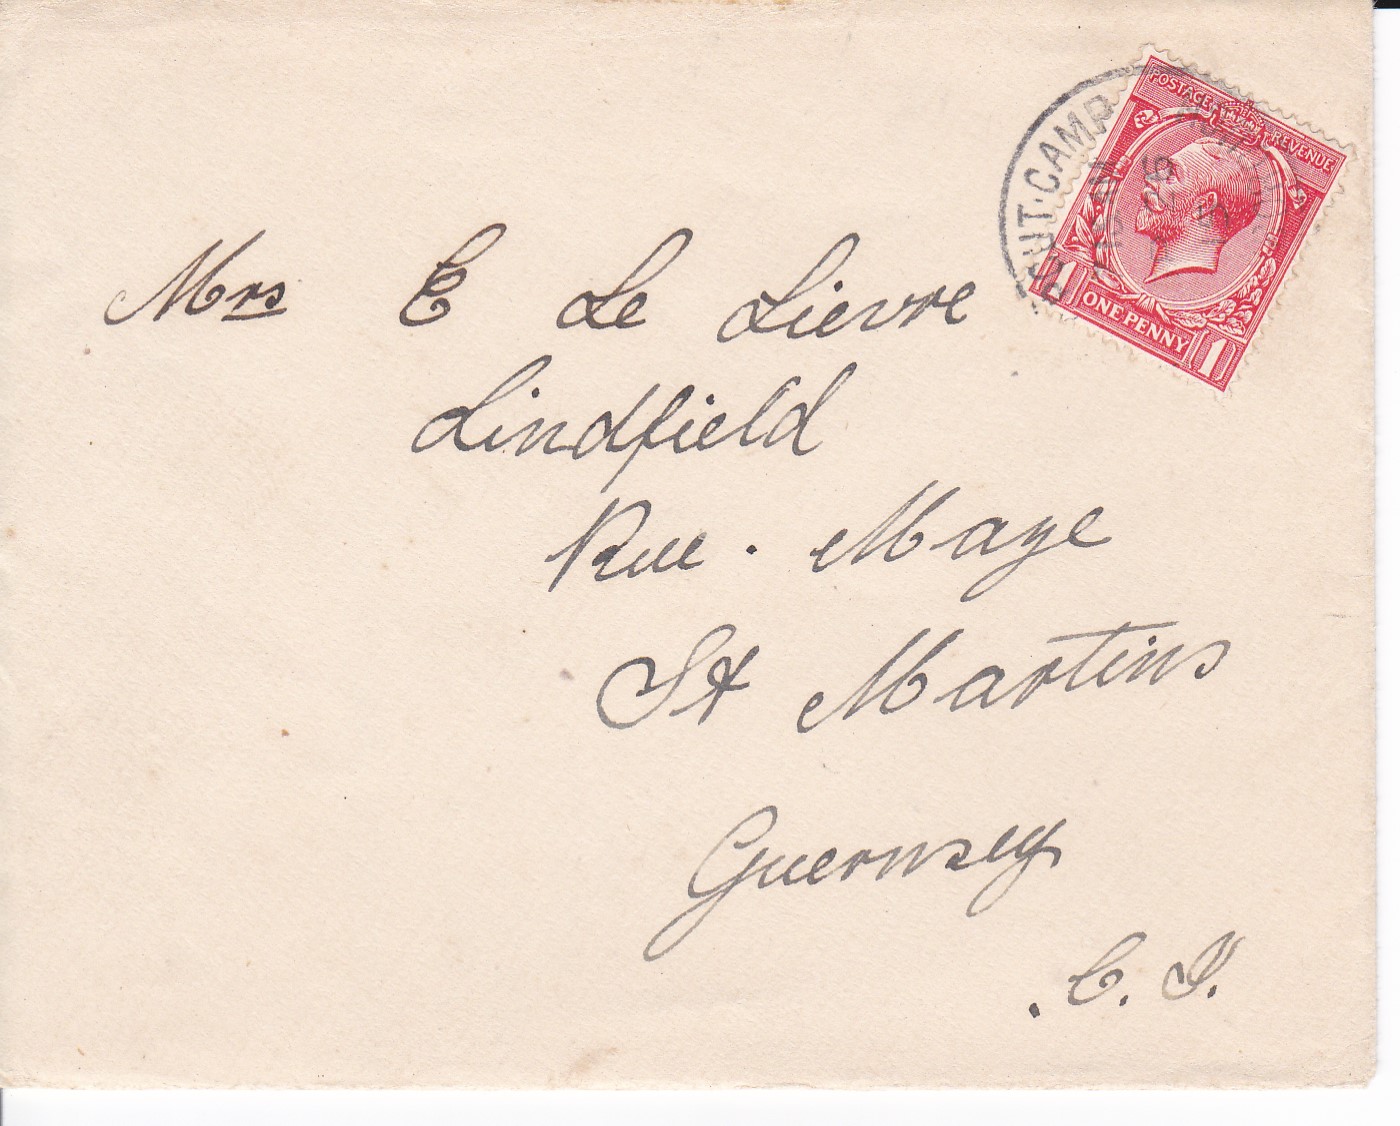 Mrs E Le Lievre
Lindfield
Rue . Maze
St Martins
Guernsey
. C. I.
POSTAGE REVENUE
1 ONE PENNY 1
CAMP